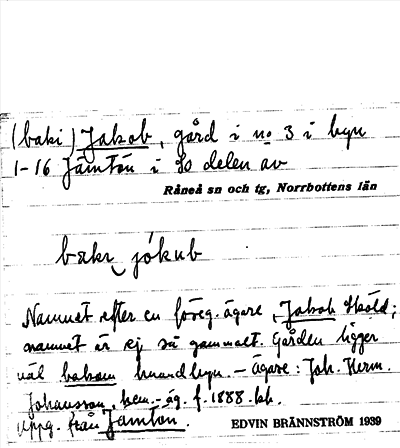 (baki) Jakob, gård i no 3 i byn
1-16 Jämtön i so delen av
Råneå sn och tg, Norrbottens län
jókub
Namnet efter en föreg. ägare, Jakob
namnet är ej så gammalt. Gården ligger
väl bakom huvudbyn. – Ägare: Joh. Herm.
Johansson, hem.-äg. f. 1888.
Uppg. från Jämtön.
EDVIN BRÄNNSTRÖM 1939